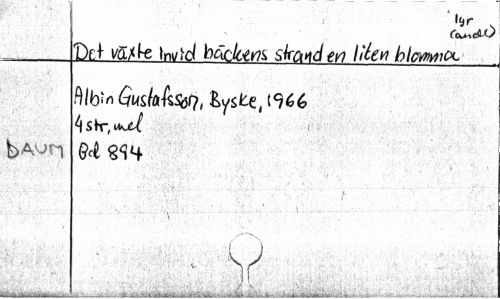 lyr
(andl)
Det växte invid bäckens strand en liten blomma
Albin Gustafsson, Byske, 1966
4 str, mel
DAUM Bd 894